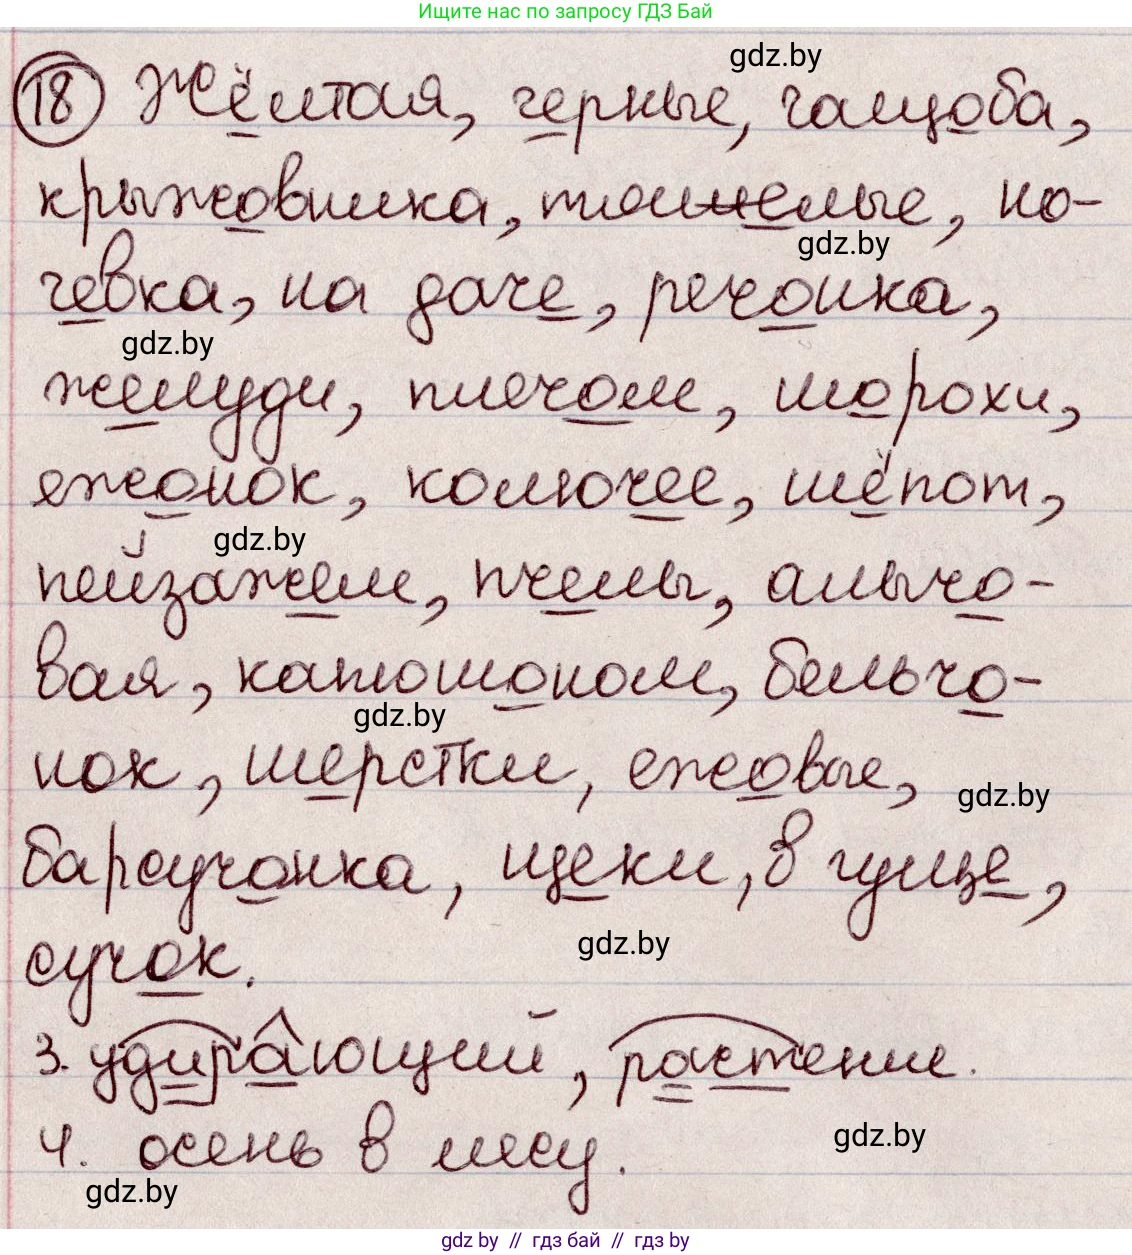 Ищите нас по запросу ГДЗ Бай
gdz.by
18 Жёлтая, черные, чащоба,
крыжовника, тяжелые, но-
gdz.by
чевка, на даче, речонка,
gdz.by
желуди, плечом, шорохи,
ежонок, колючее, шёпот,
gdz.by
пейзажем, пчелы, алычо-
вая, капюшоном, бельчо-
gdz.by
нок, шерстки, ежовые,
gdz.by
барсучонка, щеки, в гуще,
gdz.by
сучок.
3. удирающий, растение.
4. осень в лесу.
gdz.by
gdz.by
gdz by // гдз бай // гдз by